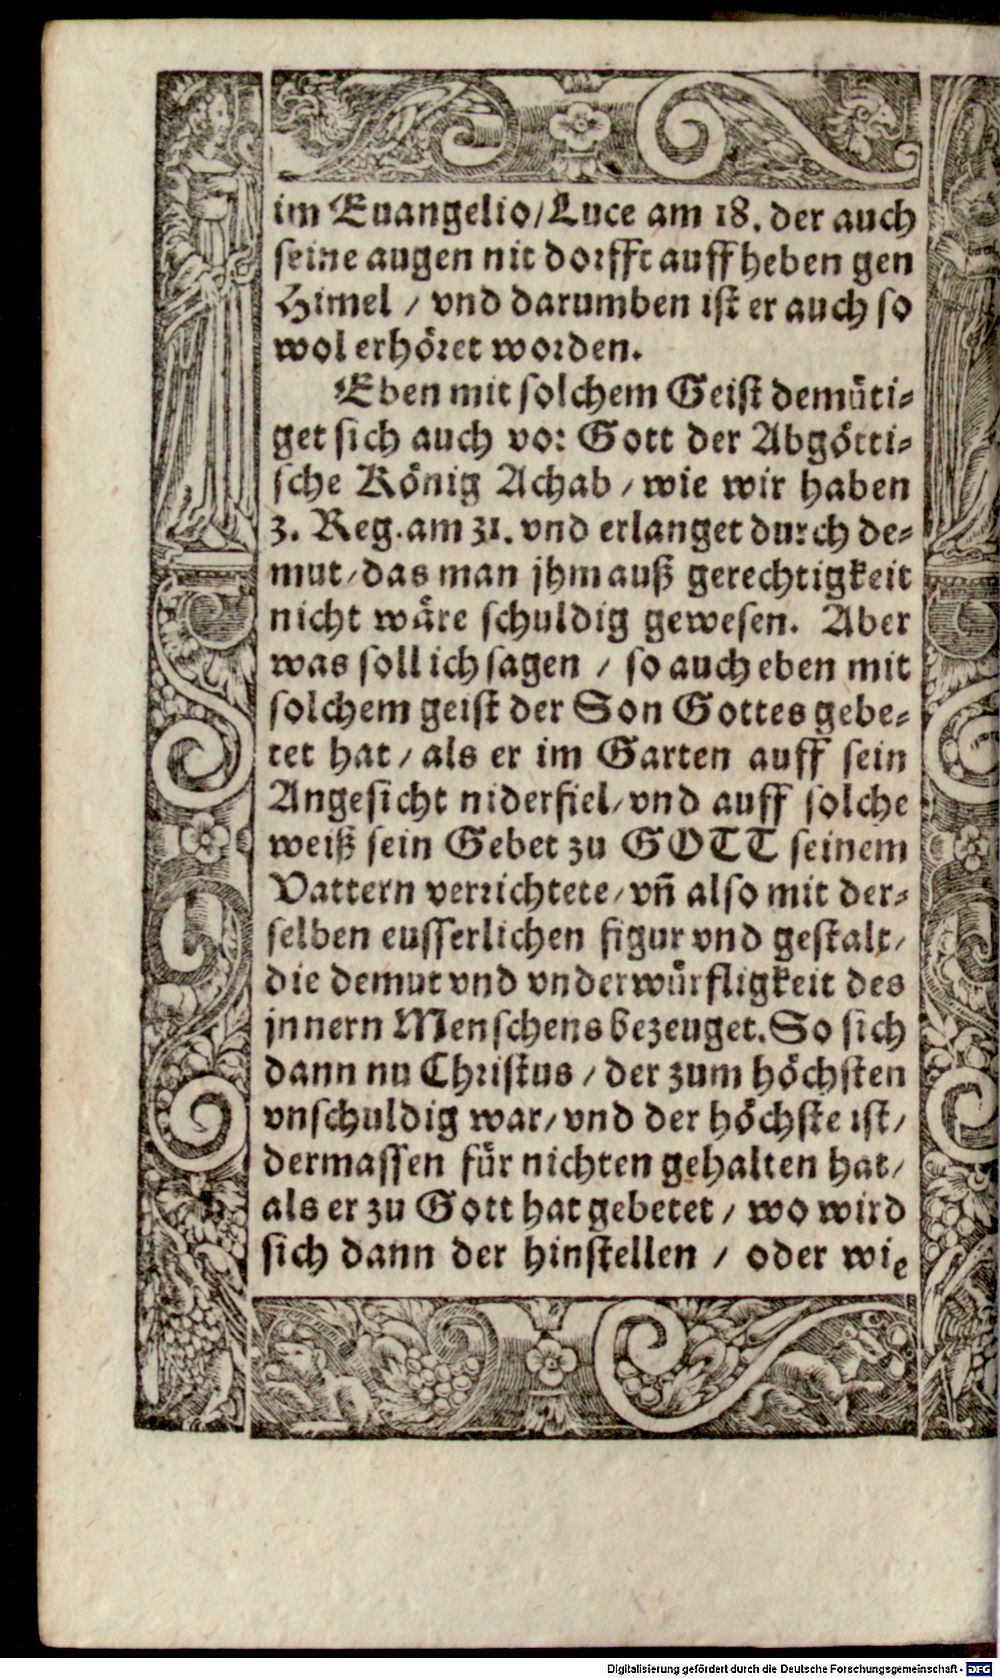 im Euangelio/Luce am 18. der auch
seine augen nit dorfft auffheben gen
Himel / vnd darumben ist er auch so
wol erhöret worden.
Eben mit solchem Geist demüti-
get sich auch vor Gott der Abgötti-
sche König Achab / wie wir haben
3. Reg. am 31. vnd erlanget durch de-
mut/das man jhm auß gerechtigkeit
nicht wäre schuldig gewesen. Aber
was soll ich sagen / so auch eben mit
solchem geist der Son Gottes gebe-
tet hat / als er im Garten auff sein
Angesicht niderfiel/vnd auff solche
weiß sein Gebet zu GOTT seinem
Vattern verrichtete/vñ also mit der-
selben eusserlichen figur vnd gestalt/
die demut vnd vnderwürfligkeit des
jnnern Menschens bezeuget. So sich
dann nu Christus / der zum höchsten
vnschuldig war/vnd der höchste ist/
dermassen für nichten gehalten hat/
als er zu Gott hat gebetet / wo wird
sich dann der hinstellen / oder wie
Digitalisierung gefördert durch die Deutsche Forschungsgemeinschaft - DFG